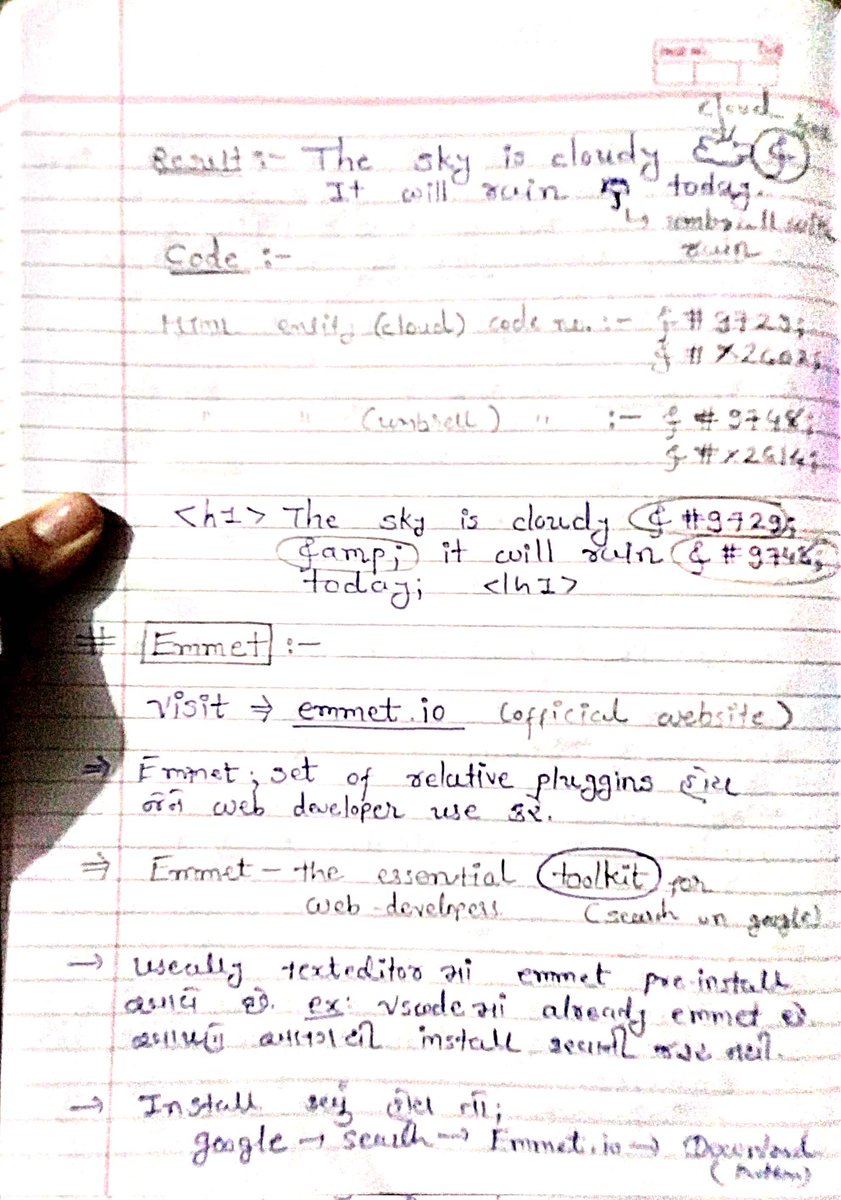 cloud
Result :- The sky is cloudy &
It will rain today.
↳ umbrall with
rain
Code :-
Html entity (cloud) code no. :- &#9729;
&#x2601;
" " (umbrell) " :- &#9748;
&#x2614;
<h1> The sky is cloudy &#9729;
&amp; it will rain &#9748;
today; </h1>
# Emmet :-
Visit ⇒ emmet.io (official website)
⇒ Emmet ; set of relative pluggins હોય
જેને web developer use કરે.
⇒ Emmet - the essential toolkit for
web-developers (search on google)
→ useally texteditor માં emmet pre-install
આવે છે. ex: vscode માં already emmet છે
આપણે અલગથી install કરવાની જરૂર નથી.
→ Install કરવું હોય તો;
google → search → Emmet.io → Download